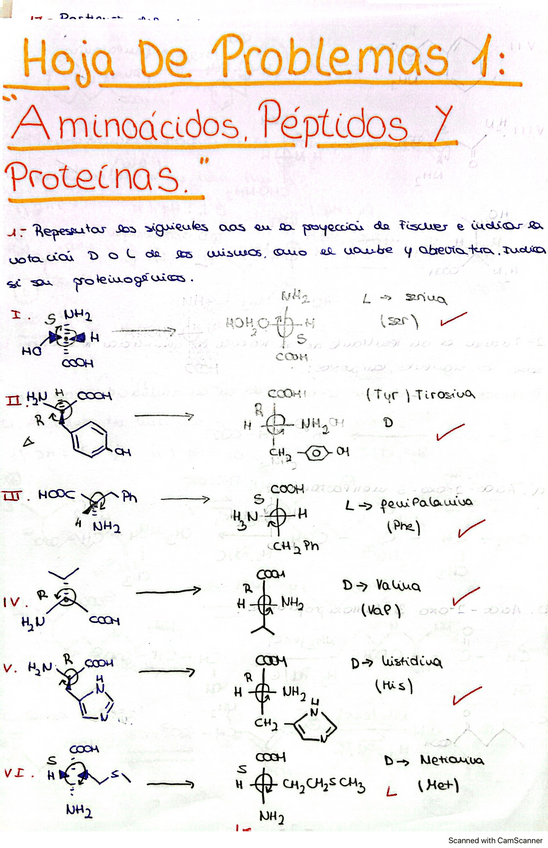 Hoja De Problemas 1:
"Aminoácidos, Péptidos Y
Proteínas."
1.- Represntar los siguientes aas en la proyección de Fischer e indicar la
notación D o L de los mismos, como el nombre y abreviatura. Indica
si son proteinogénicos.
I. S NH2 H HO COOH
NH2 HOH2C H S COOH
L → serina
(Ser)
II. H2N H COOH R OH
COOH R H NH2 CH2 OH
(Tyr) Tirosina
D
III. HOOC Ph H NH2
COOH S H3N H CH2Ph
L → fenilalanina
(Phe)
IV. R H2N COOH
COOH R H NH2
D → Valina
(Val)
V. H2N R COOH H N N
COOH R H NH2 CH2 H N N
D → histidina
(His)
VI. COOH S H S NH2
COOH S H CH2CH2SCH3 NH2
D → Metionina
L (Met)
Scanned with CamScanner